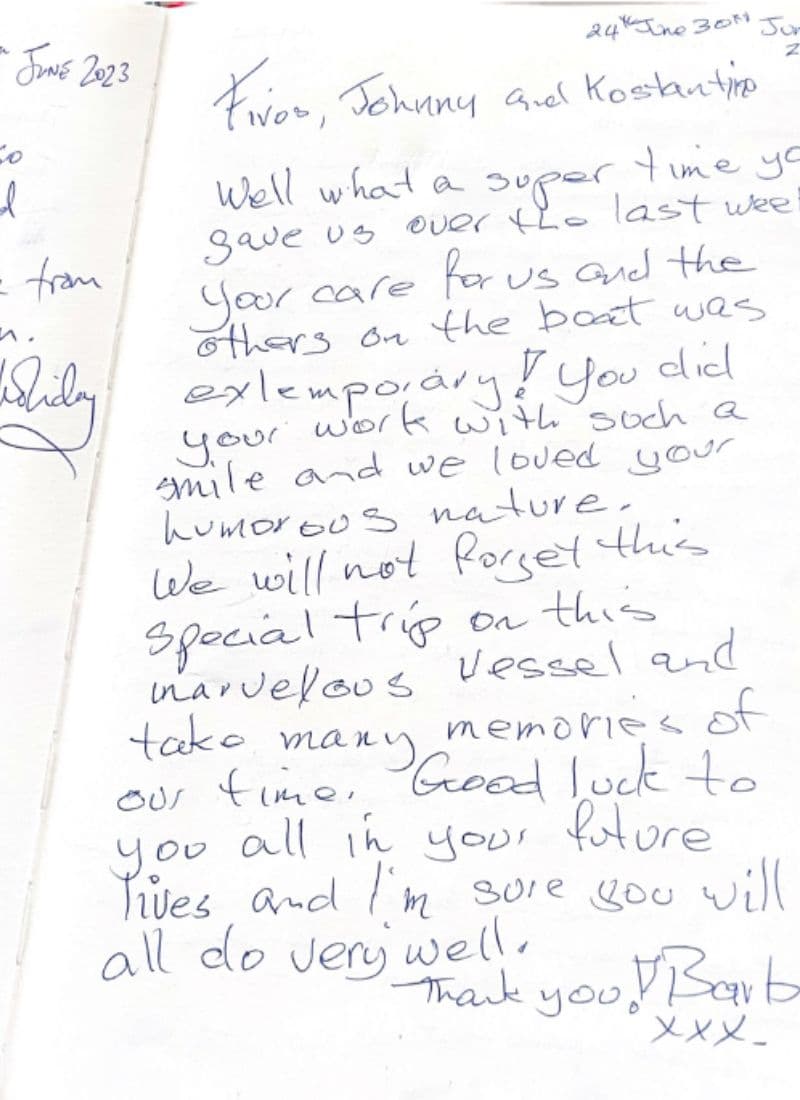 JUNE 2023
so
d
from
n.
Holiday
24th June 30th Jun
2
Fivos, Johnny and Kostantino
Well what a super time yo
gave us over the last week
your care for us and the
others on the boat was
exlemporary! You did
your work with such a
smile and we loved your
humorous nature.
We will not forget this
special trip on this
marvellous vessel and
take many memories of
our time. Good luck to
you all in your future
lives and I'm sure you will
all do very well.
Thank you! Barb
xxx-